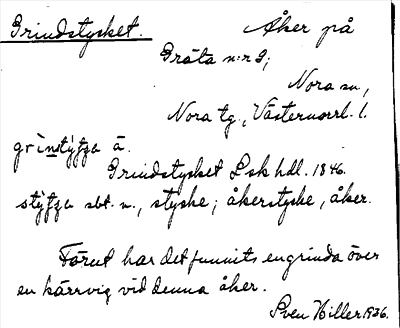 Grindstycket. Åker på
Gräta n:r 2;
Nora sn,
Nora tg., Västernorrl. l.
grìnstýʃʃa ä.
Grindstycket Lsk hdl. 1846.
stýʃʃa sbt. n., stycke; åkerstycke, åker.
Förut har det funnits en grinda över
en kärrvig vid denna åker.
Sven Hiller 1936.